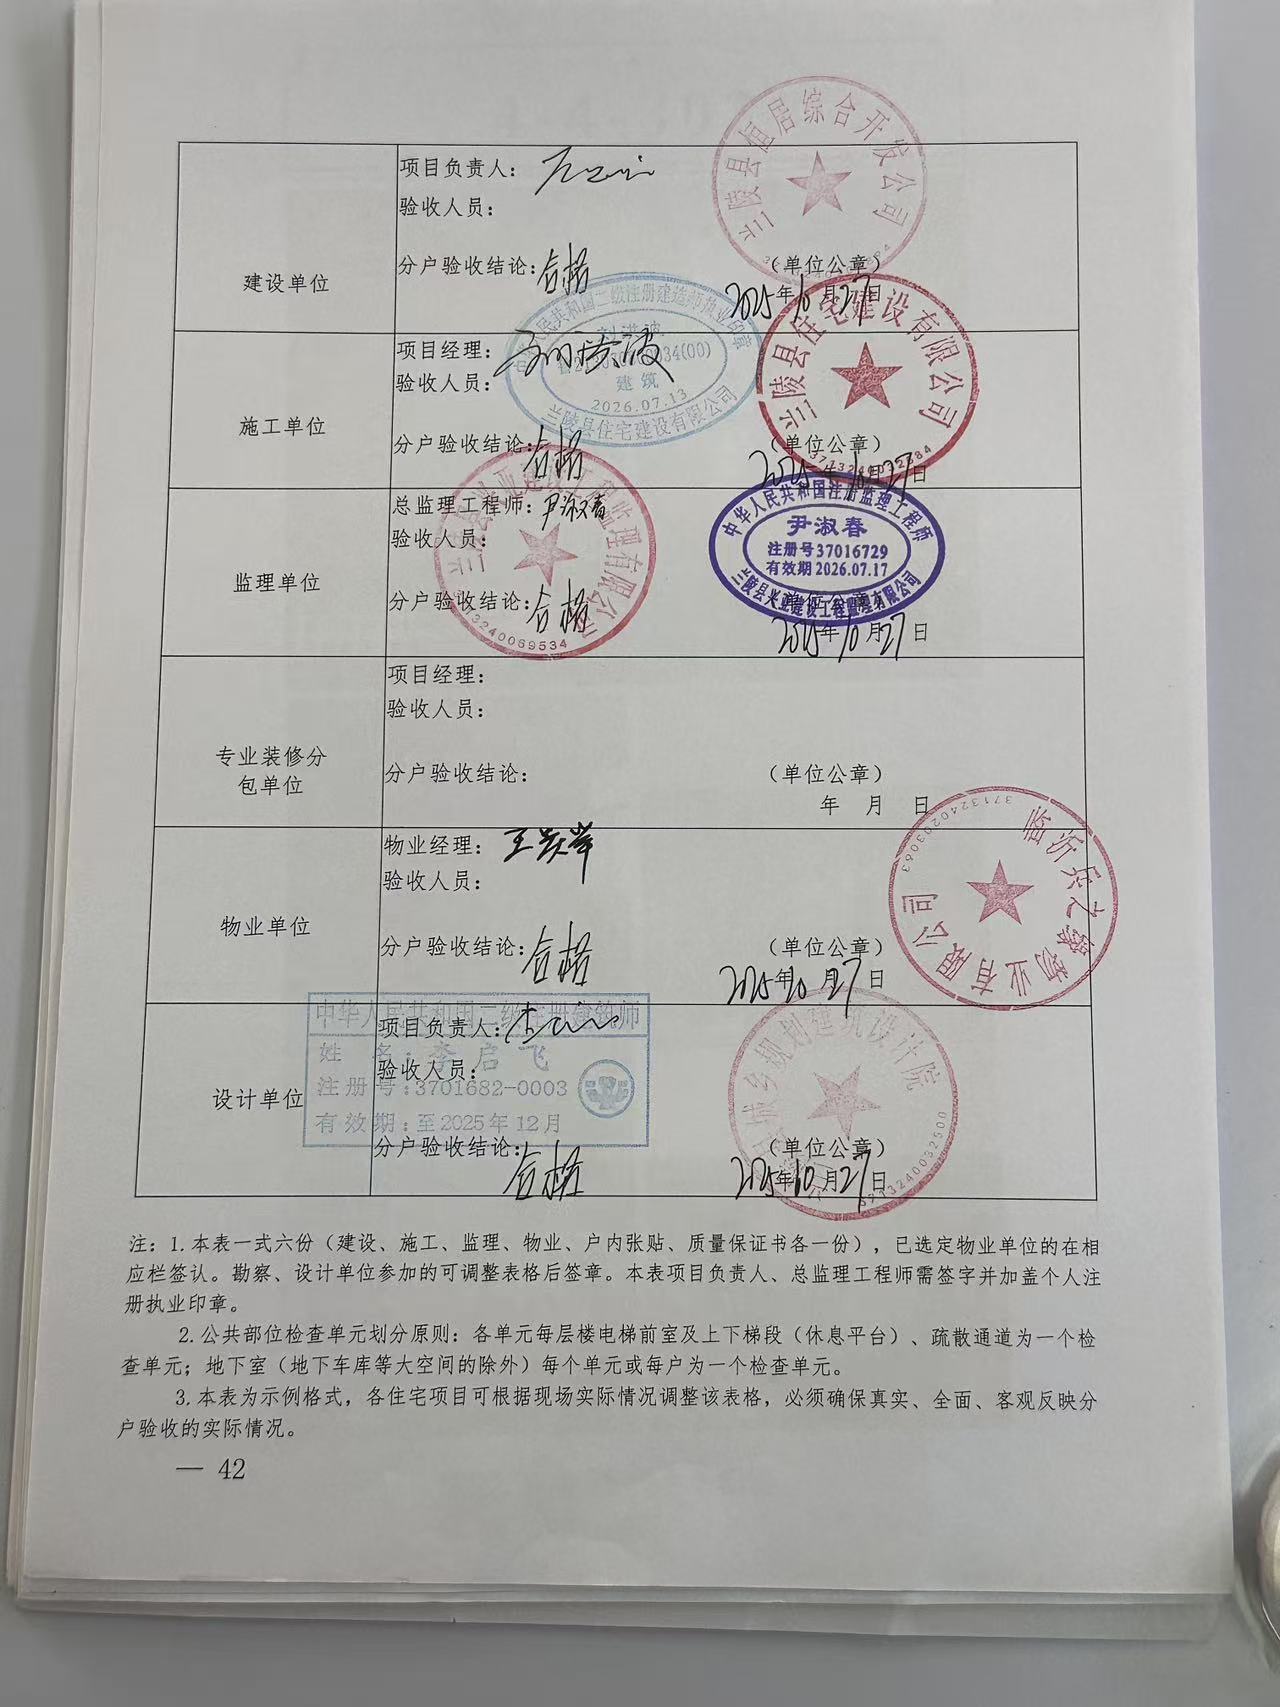 兰陵县恒居综合开发公司
建设单位
项目负责人：
验收人员：
分户验收结论：合格
（单位公章）
2025年10月27日
兰陵县住宅建设有限公司
3713240032684
中华人民共和国二级注册建造师执业印章
建筑
2026.07.13
兰陵县住宅建设有限公司
施工单位
项目经理：
验收人员：
分户验收结论：合格
（单位公章）
2025年10月27日
监理单位
总监理工程师：尹淑春
验收人员：
分户验收结论：合格
3713240069534
中华人民共和国注册监理工程师
尹淑春
注册号37016729
有效期2026.07.17
兰陵县兴业建设工程监理有限公司
单位公章
2025年10月27日
专业装修分
包单位
项目经理：
验收人员：
分户验收结论：
（单位公章）
年 月 日
物业单位
物业经理：
验收人员：
分户验收结论：合格
（单位公章）
2025年10月27日
3713240203063
设计单位
项目负责人：
验收人员：
分户验收结论：合格
（单位公章）
2025年10月27日
中华人民共和国二级注册建筑师
姓 名：李启飞
注册号：3701682-0003
有效期：至2025年12月
规划建筑设计院
3713240032500
注：1.本表一式六份（建设、施工、监理、物业、户内张贴、质量保证书各一份），已选定物业单位的在相
应栏签认。勘察、设计单位参加的可调整表格后签章。本表项目负责人、总监理工程师需签字并加盖个人注
册执业印章。
2.公共部位检查单元划分原则：各单元每层楼电梯前室及上下梯段（休息平台）、疏散通道为一个检
查单元；地下室（地下车库等大空间的除外）每个单元或每户为一个检查单元。
3.本表为示例格式，各住宅项目可根据现场实际情况调整该表格，必须确保真实、全面、客观反映分
户验收的实际情况。
— 42